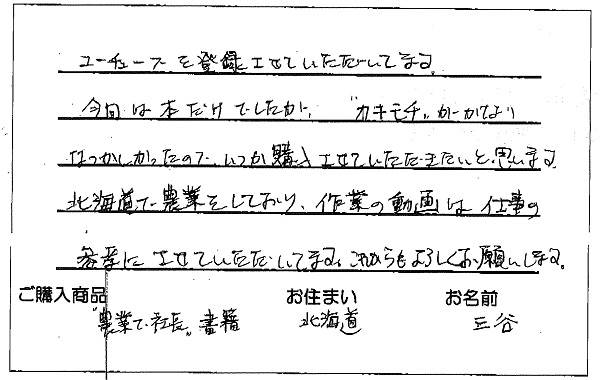 ユーチューブを登録させていただいてます。
今回は本だけでしたが、"カキモチ"がかなり
なつかしかったので、いつか購入させていただきたいと思います
北海道で農業をしており、作業の動画は仕事の
参考にさせていただいてます。これからもよろしくお願いします。
ご購入商品 お住まい お名前
"農業で社長" 書籍 北海道 三谷